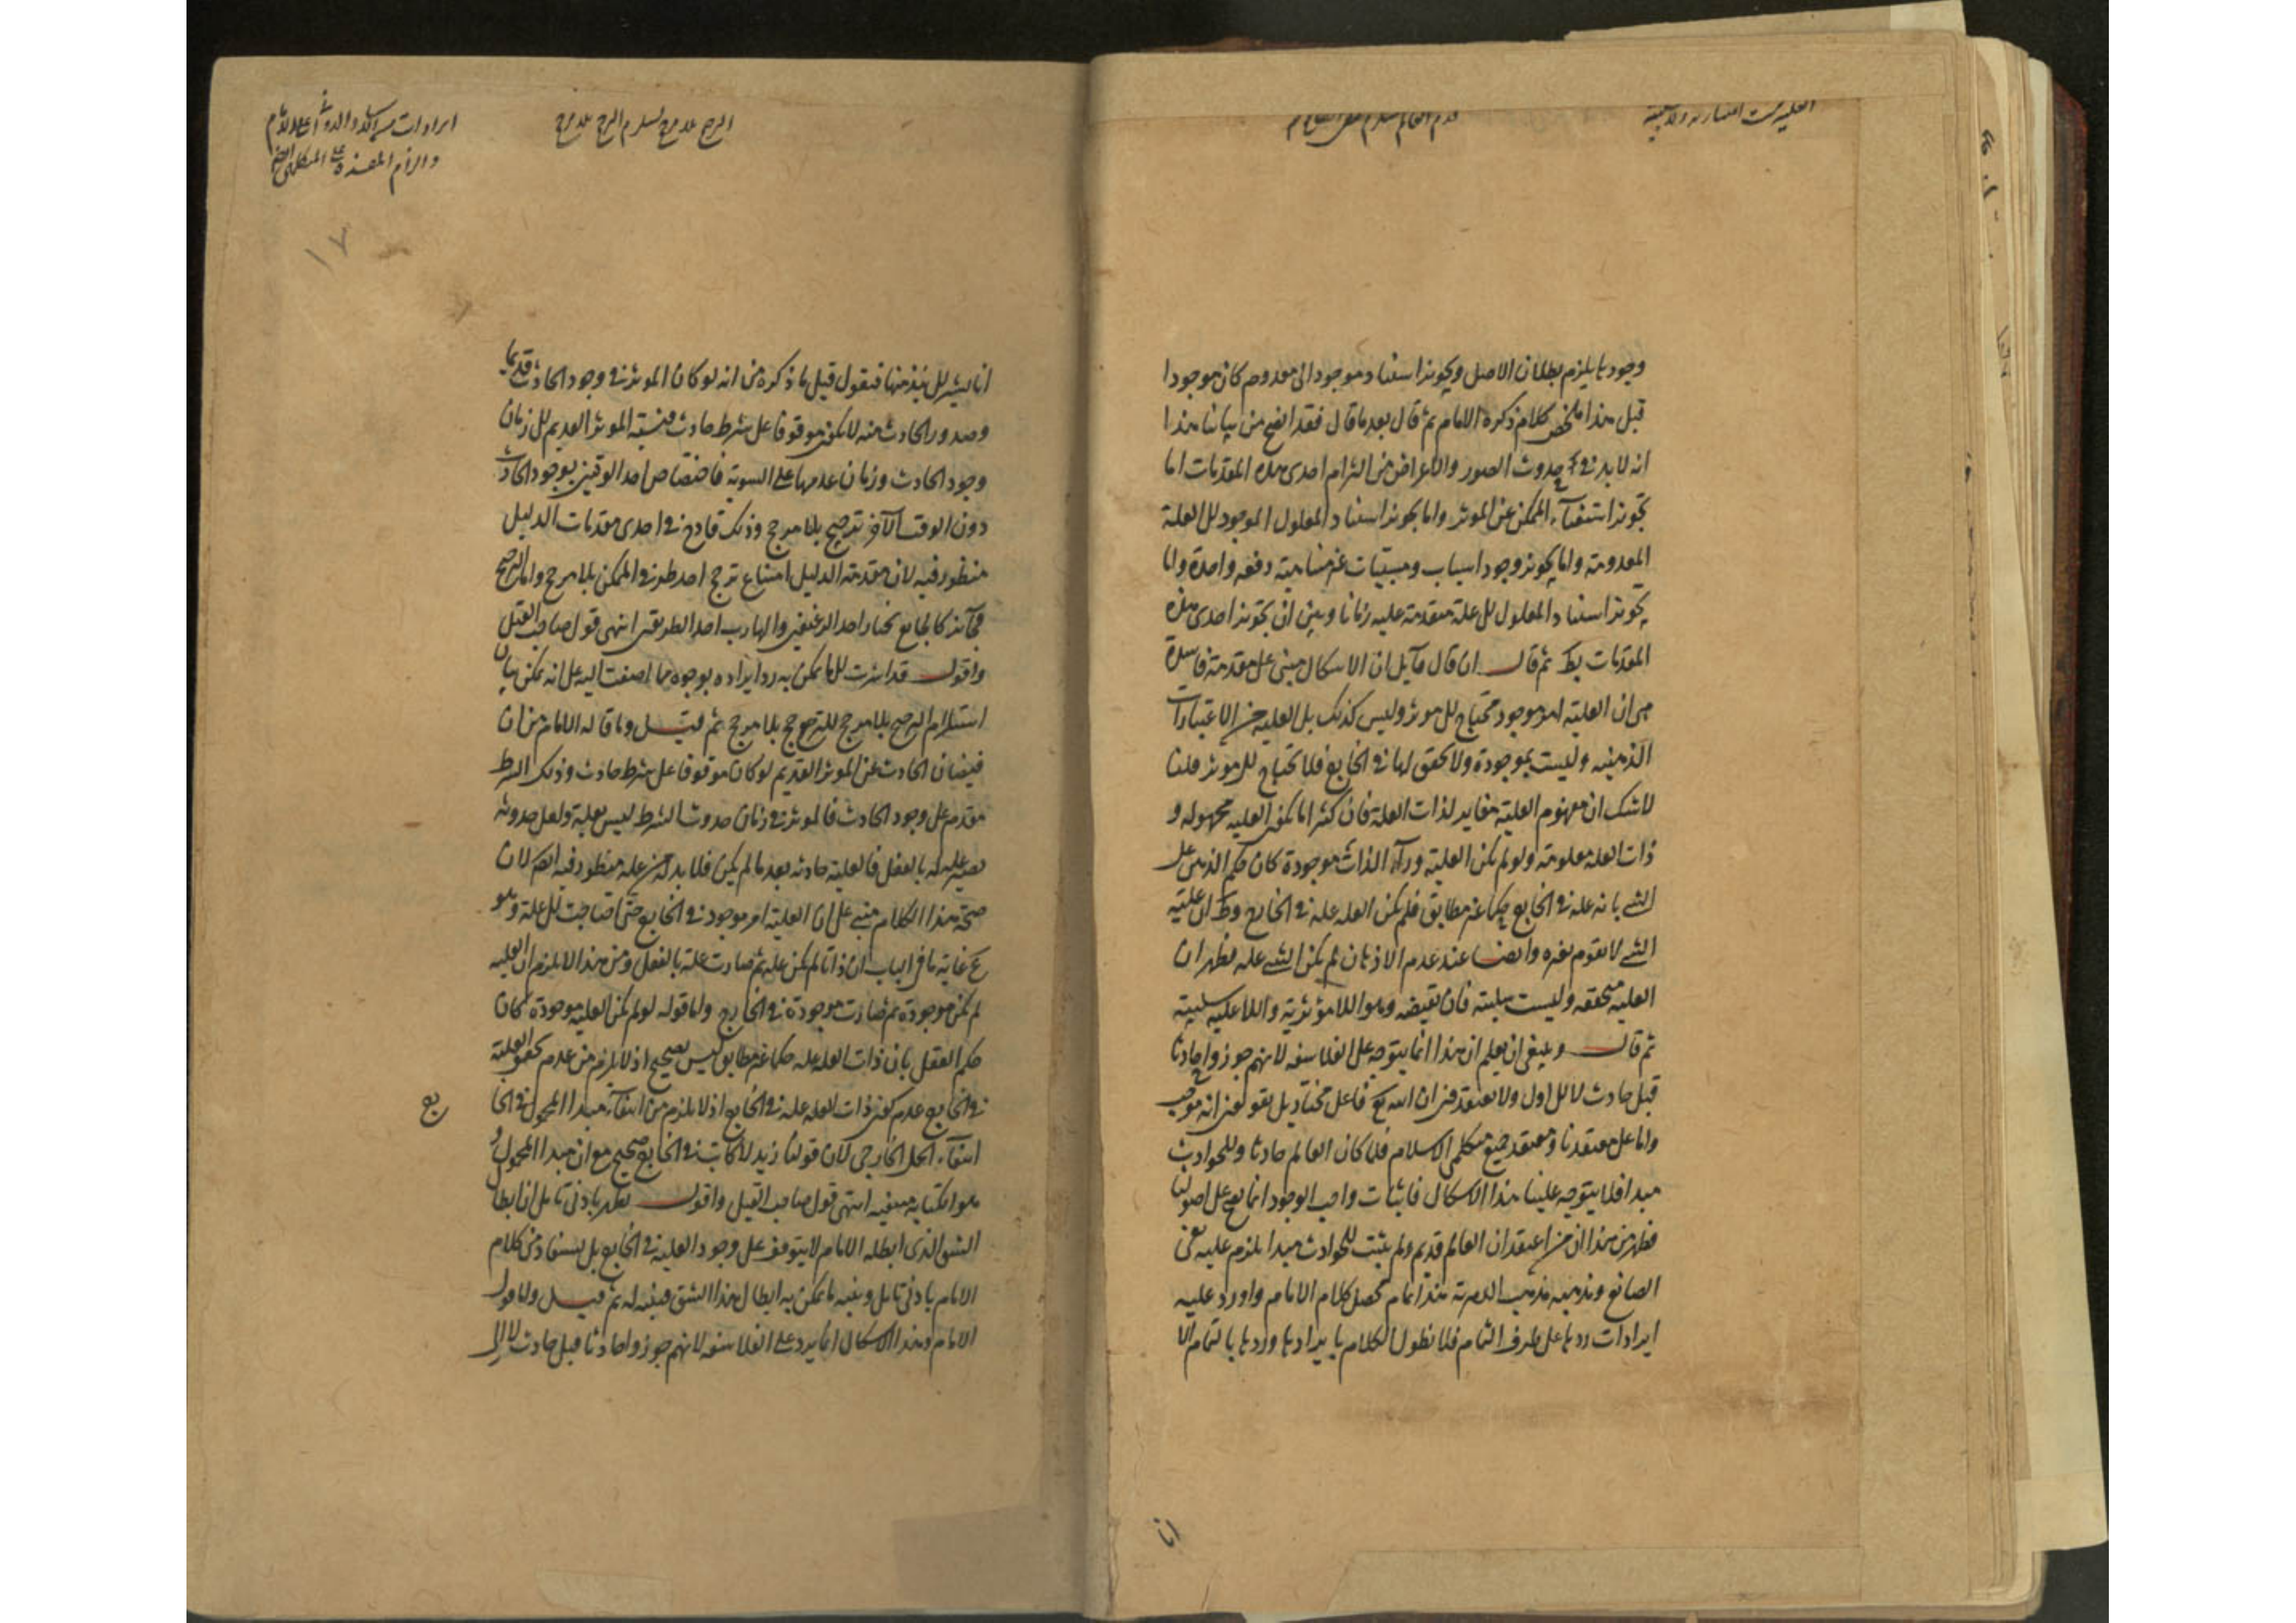 العلية ليست اعتبارية ولا سلبية
قدم العالم يستلزم نفي الصانع
وجودها يلزم بطلان الاصل وبجوز استناد موجود الى معدوم كان موجودا
قبل هذا ملخص كلام ذكره الامام ثم قال بعد ما قال فقد اتضح من بياننا هذا
انه لا بد في حدوث الصور والاعراض من التزام احدى هذه المقدمات اما
تجويز استغناء الممكن عن الموثر واما تجويز استناد المعلول الموجود الى العلة
المعدومة واما تجويز وجود اسباب ومسببات غير متناهية دفعه واحدة واما
تجويز استناد المعلول الى علة متقدمة عليه زمانا وبين ان تجويز احدى هذه
المقدمات بط ثم قال ان قال قايل ان الاشكال مبنى على مقدمة فاسدة
هى ان العلية امر موجود محتاج الى موثر وليس كذلك بل العلية من الاعتبارات
الذهنية وليست بموجودة ولا تحقق لها في الخارج فلا تحتاج الى موثر قلنا
لا شك ان مفهوم العلية مغاير لذات العلة فان كثيرا ما تكون العلية مجهولة و
ذات العلة معلومة ولو لم تكن العلية وراء الذات موجودة كان حكم الذهن على
الشئ بانه علة في الخارج حكما غير مطابق فلم تكن العلة علة في الخارج وظ ان علية
الشئ لا تقوم بغيره وايضا عند عدم الاذهان لم يكن الشئ علة فظهر ان
العلية متحققة وليست سلبية فان نقيضه وهو اللا مؤثرية واللا علية سلبية
ثم قال وينبغى ان يعلم ان هذا انما يتوجه على الفلاسفه لانهم جوزوا حادثا
قبل حادث لا الى اول ولا نعتقد فى ان الله تع فاعل مختار بل يقولون انه موجب
واما على معتقدنا ومعتقد جميع متكلمى الاسلام فلما كان العالم حادثا وللحوادث
مبدا فلا يتوجه علينا هذا الاشكال فاثبات واجب الوجود انما يصح على اصولنا
فظهر من هذا ان من اعتقد ان العالم قديم ولم يثبت للحوادث مبدا يلزم عليه نفى
الصانع ومذهبه مذهب الدهرية هذا تمام محصل كلام الامام واورد عليه
ايرادات ردها على طرف الثمام فلا نطول الكلام بايرادها وردها بالتمام الا
انا
ايرادات على الامام
والزام المفسدة على المتكلمين ايضا
الترجيح بلا مرجح يستلزم الترجح بلا مرجح
١٧
انا نشير الى نبذ منها فنقول قيل ما ذكره من انه لو كان الموثر في وجود الحادث قديما
وصدور الحادث منه لا يكون موقوفا على شرط حادث فنسبة الموثر القديم الى زمان
وجود الحادث وزمان عدمها على السوية فاختصاص احد الوقتين بوجود الحادث
دون الوقت الآخر ترجيح بلا مرجح وذلك قادح في احدى مقدمات الدليل
منظور فيه لان مقدمة الدليل امتناع ترجح احد طرفى الممكن بلا مرجح واما الترجيح
فجائز كالجايع يختار احد الرغيفين والهارب احد الطريقين انتهى قول صاحب القيل
واقول قد اشرت الى ما يمكن به رد ايراده بوجوه مما اضفت اليه على انه يمكن بيان
استلزام الترجيح بلا مرجح للترجح بلا مرجح ثم قيل وما قاله الامام من ان
فيضان الحادث عن الموثر القديم لو كان موقوفا على شرط حادث وذلك الشرط
مقدم على وجود الحادث فالموثر في زمان حدوث الشرط ليس بعلية ولعل حدوثه
يصير علة له بالفعل فالعلية حادثه بعد ما لم يكن فلا بد له من علة منظور فيه ايضا لان
صحة هذا الكلام مبنى على ان العلية امر موجود في الخارج حتى احتاجت الى علة وهو
مم غاية ما فى الباب ان ذاتا لم تكن علة ثم صارت علة بالفعل ومن هذا لا يلزم ان العلية
لم تكن موجودة ثم صارت موجودة في الخارج واما قوله لو لم تكن العلية موجودة كان
حكم العقل بان ذات العلة علة حكما غير مطابق ليس بصحيح اذ لا يلزم من عدم تحقق العلية
في الخارج عدم كون ذات العلة علة في الخارج اذ لا يلزم من انتفاء مبدا المحمول في الخا
رج
انتفاء الحمل الخارجى لان قولنا زيد لا كاتب في الخارج صحيح مع ان مبدا المحمول و
هو الكتابة منفية انتهى قول صاحب القيل واقول يظهر بادنى تامل ان ابطال
الشق الذى ابطله الامام لا يتوقف على وجود العلية في الخارج بل يستفاد من كلام
الامام بادنى تامل وتنبه ما يمكن به ابطال هذا الشق فتنبه له ثم قيل واما قول
الامام وهذا الاشكال انما يرد على الفلاسفه لانهم جوزوا حادثا قبل حادث لا الى